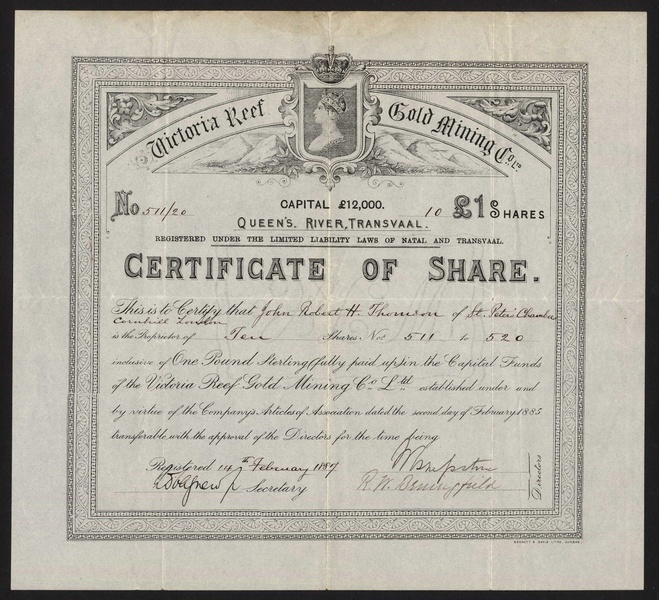 Victoria Reef Gold Mining Co. Ltd
No 511/20
CAPITAL £12,000.
10 £1 SHARES
QUEEN'S. RIVER, TRANSVAAL.
REGISTERED UNDER THE LIMITED LIABILITY LAWS OF NATAL AND TRANSVAAL.
CERTIFICATE OF SHARE.
This is to Certify that John Robert H. Thomson of St. Peter Chamber
Cornhill London
is the Proprietor of Ten Shares Nos 511 to 520
inclusive of One Pound Sterling (fully paid up) in the Capital Funds
of the Victoria Reef Gold Mining Co Ltd established under and
by virtue of the Company's Articles of Association dated the second day of February 1885
transferable with the approval of the Directors for the time being
Registered 14th February 1887
Secretary
R.W.
Directors
BENNETT & DAVIS LITHO, DURBAN.